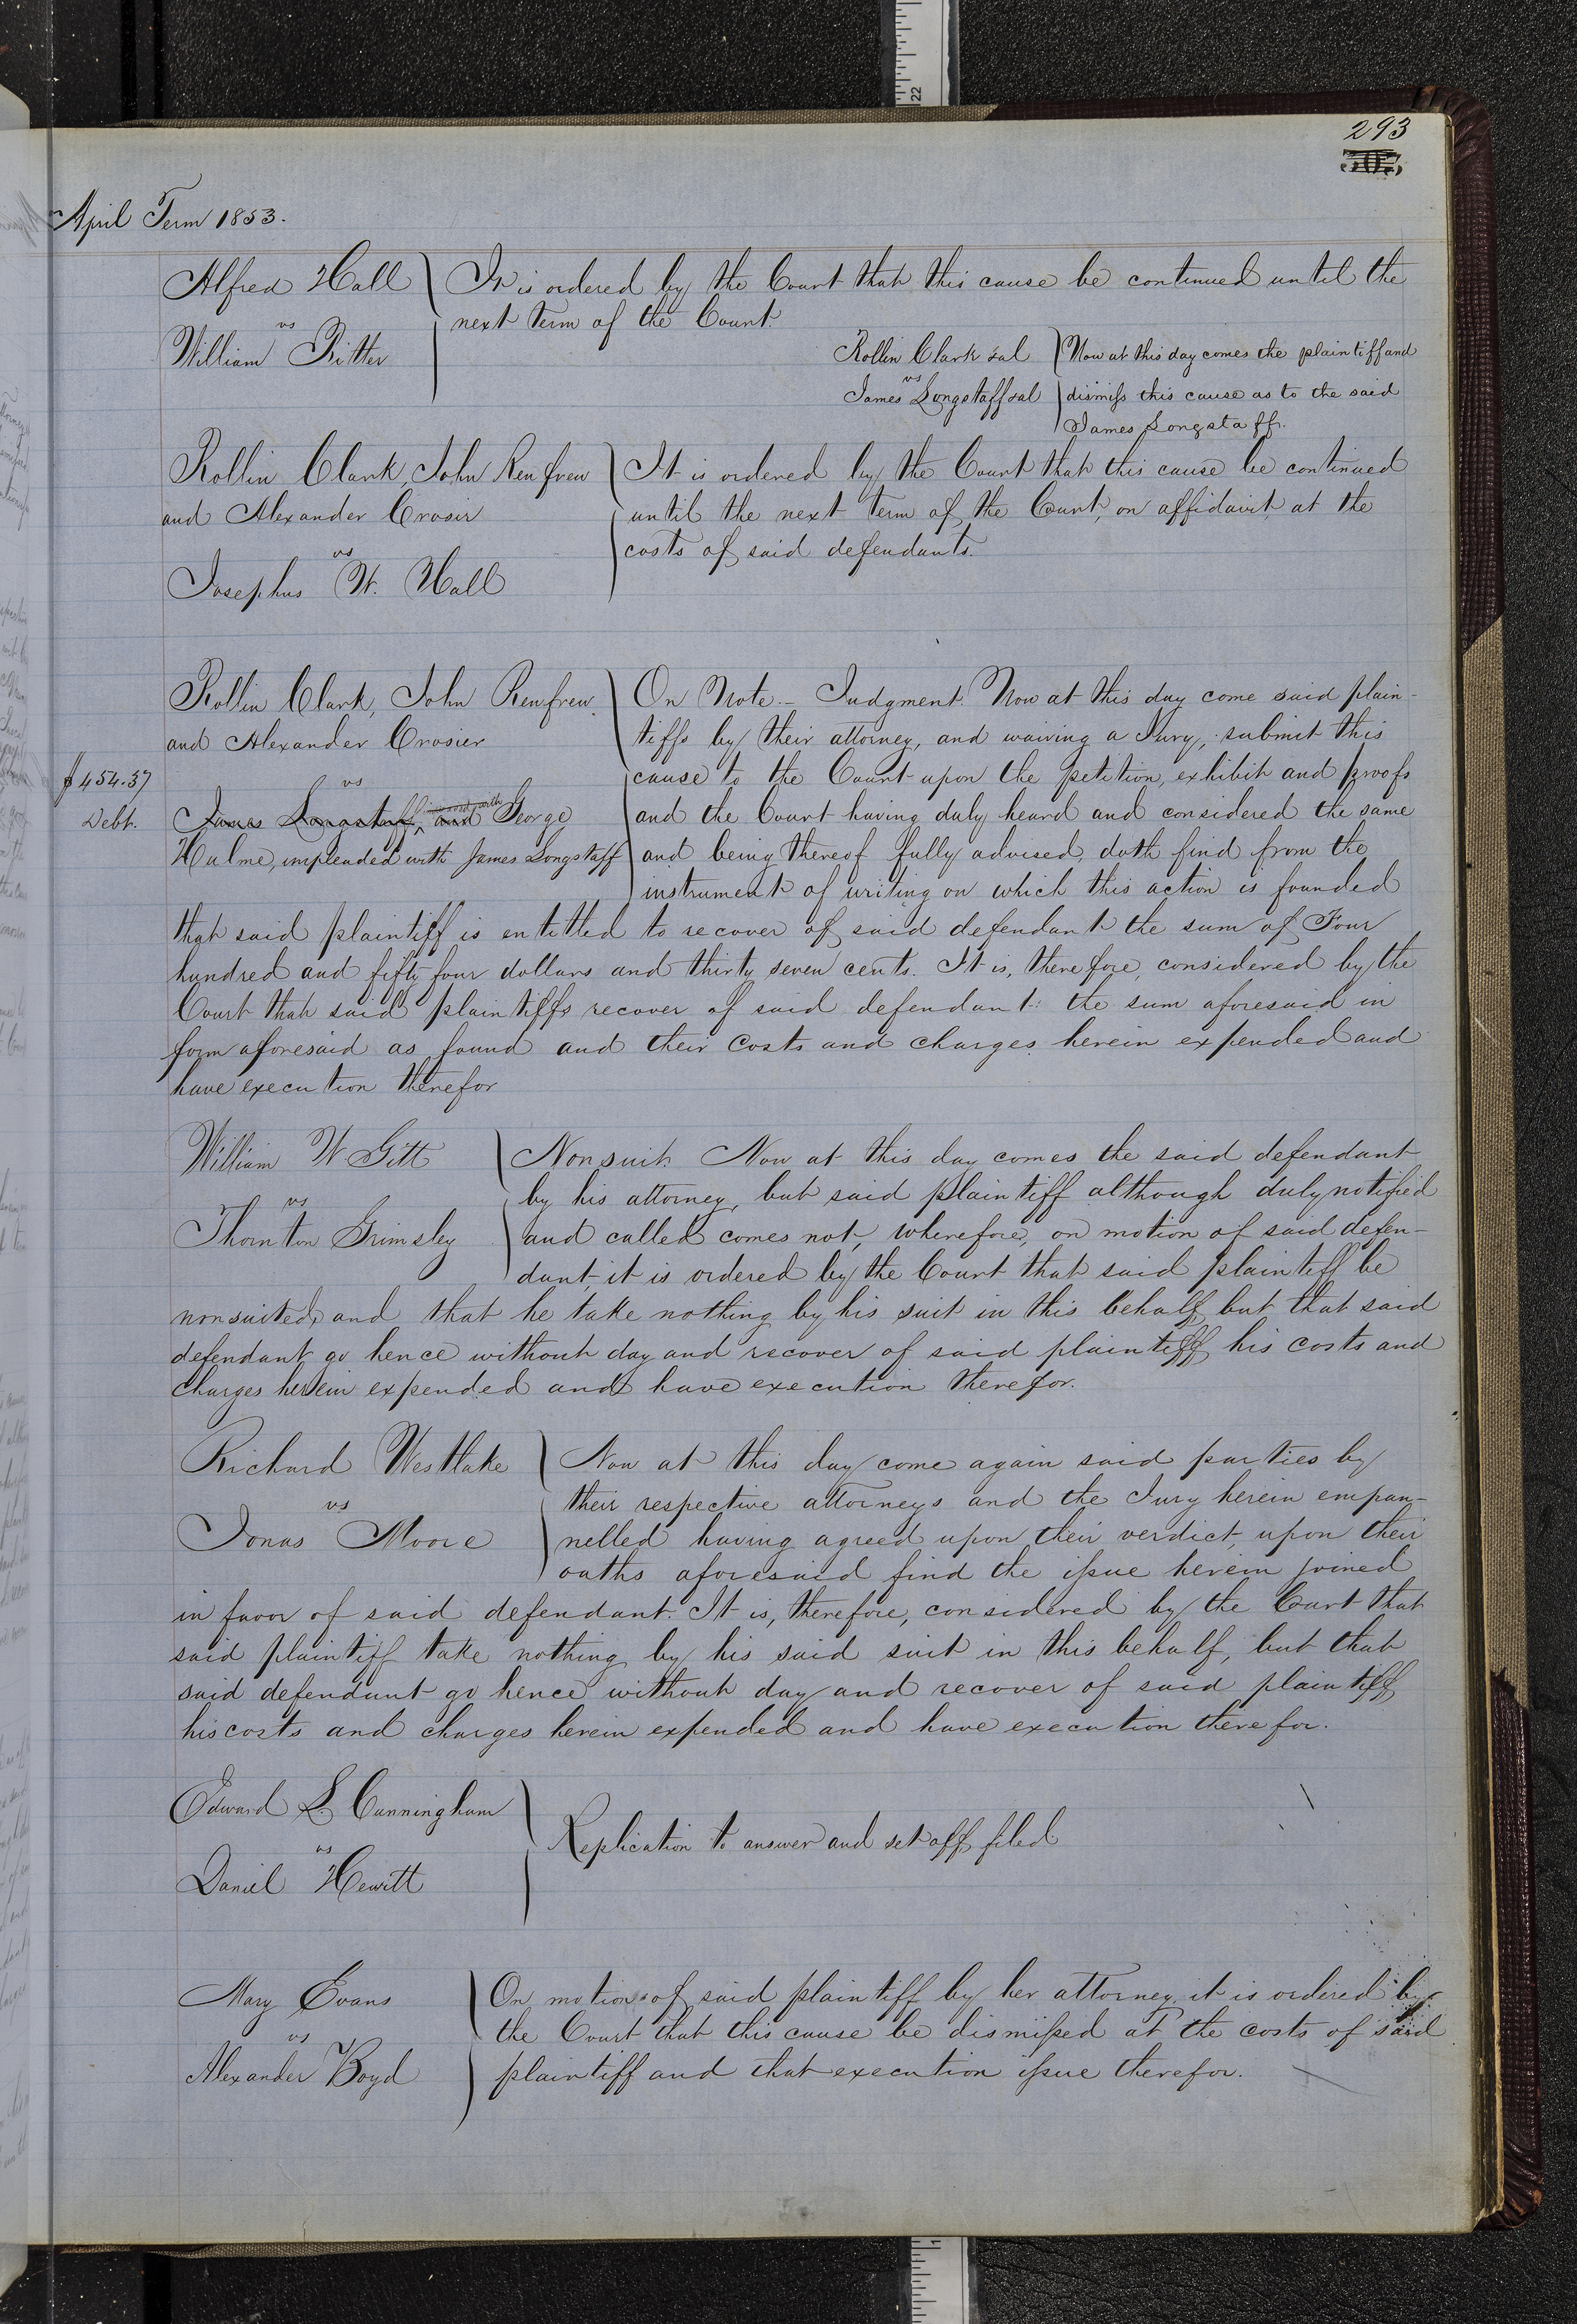 293
April Term 1853.
Alfred Hall
vs
William Ritter
It is ordered by the Court that this cause be continued until the
next term of the Court.
Rollin Clark & al
vs
James Longstaff & al
Now at this day comes the plaintiff and
dismiss this cause as to the said
James Longstaff.
Rollin Clark, John Renfrew
and Alexander Crosier
vs
Josephus W. Hall
It is ordered by the Court that this cause be continued
until the next term of the Court, on affidavit, at the
costs of said defendants.
Rollin Clark, John Renfrew
and Alexander Crosier
vs
James Longstaff, and George
Hulme, impleaded with James Longstaff
$454.37
Debt.
On Note - Judgment. Now at this day come said plain-
tiffs by their attorney, and waiving a Jury, submit this
cause to the Court upon the petition, exhibit and proofs
and the Court having duly heard and considered the same
and being thereof fully advised, doth find from the
instrument of writing on which this action is founded
that said plaintiff is entitled to recover of said defendant the sum of Four
hundred and fifty four dollars and thirty seven cents. It is, therefore, considered by the
Court that said plaintiffs recover of said defendant the sum aforesaid in
form aforesaid as found and their costs and charges herein expended and
have execution therefor
William W Gitt
vs
Thornton Grimsley
Nonsuit. Now at this day comes the said defendant
by his attorney, but said plaintiff although duly notified
and called comes not, wherefore, on motion of said defen-
dant, it is ordered by the Court that said plaintiff be
nonsuited, and that he take nothing by his suit in this behalf, but that said
defendant go hence without day and recover of said plaintiff his costs and
charges herein expended and have execution therefor.
Richard Westlake
vs
Jonas Moore
Now at this day come again said parties by
their respective attorneys and the Jury herein empan-
nelled having agreed upon their verdict, upon their
oaths aforesaid find the issue herein joined
in favor of said defendant. It is, therefore, considered by the Court that
said plaintiff take nothing by his said suit in this behalf, but that
said defendant go hence without day and recover of said plaintiff
his costs and charges herein expended and have execution therefor.
Edward L. Cunningham
vs
Daniel Hewitt
Replication to answer and set off filed
Mary Evans
vs
Alexander Boyd
On motion of said plaintiff by her attorney, it is ordered by
the Court that this cause be dismissed at the costs of said
plaintiff and that execution issue therefor.